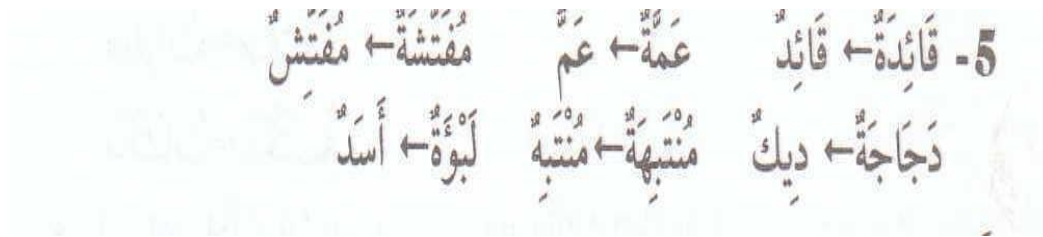 5- قَائِدَةٌ ← قَائِدٌ عَمَّةٌ ← عَمٌّ مُفَتِّشَةٌ ← مُفَتِّشٌ
دَجَاجَةٌ ← دِيكٌ مُنْتَبِهَةٌ ← مُنْتَبِهٌ لَبْؤَةٌ ← أَسَدٌ